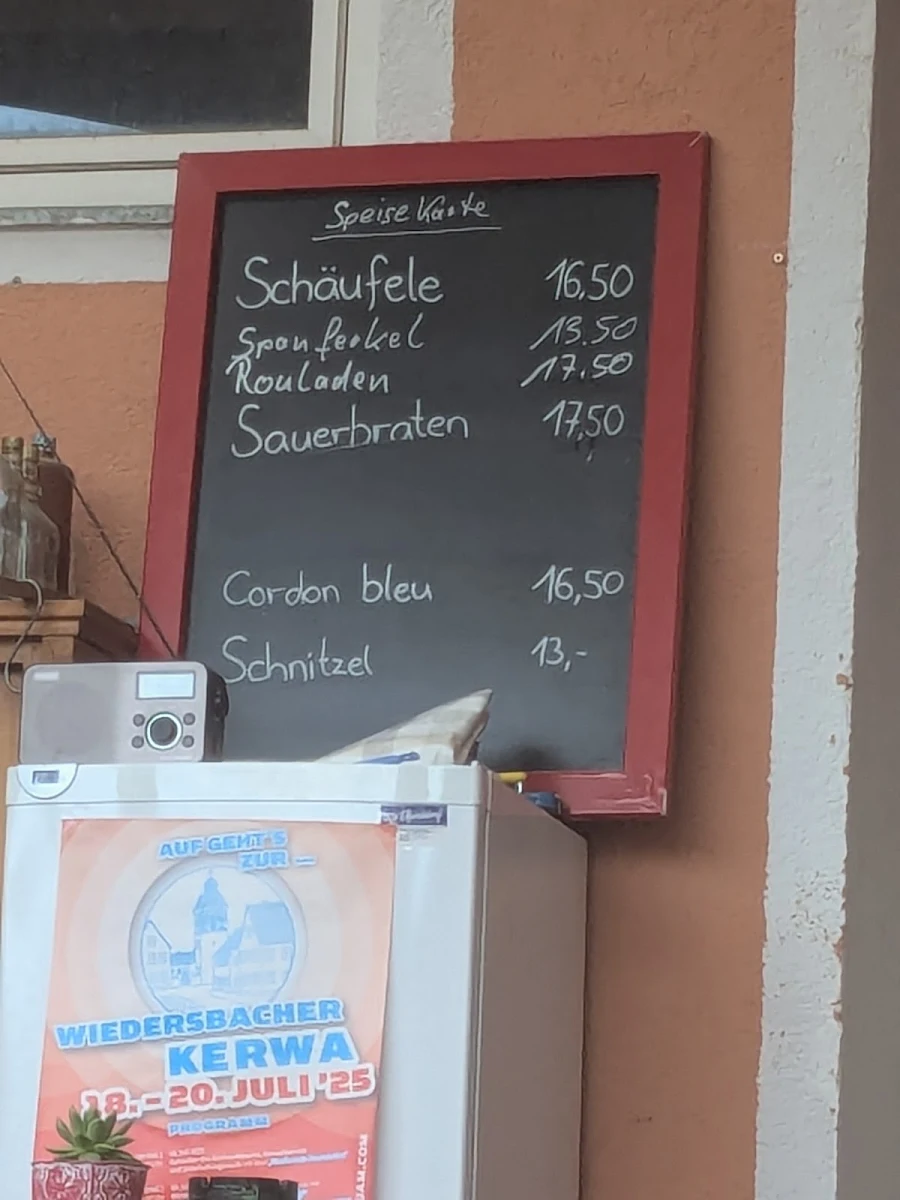 Speise Karte
Schäufele 16.50
Spanferkel 13.50
Rouladen 17.50
Sauerbraten 17,50
Cordon bleu 16,50
Schnitzel 13,-
AUF GEHT'S
ZUR ...
WIEDERSBACHER
KERWA
18. - 20. JULI '25
PROGRAMM